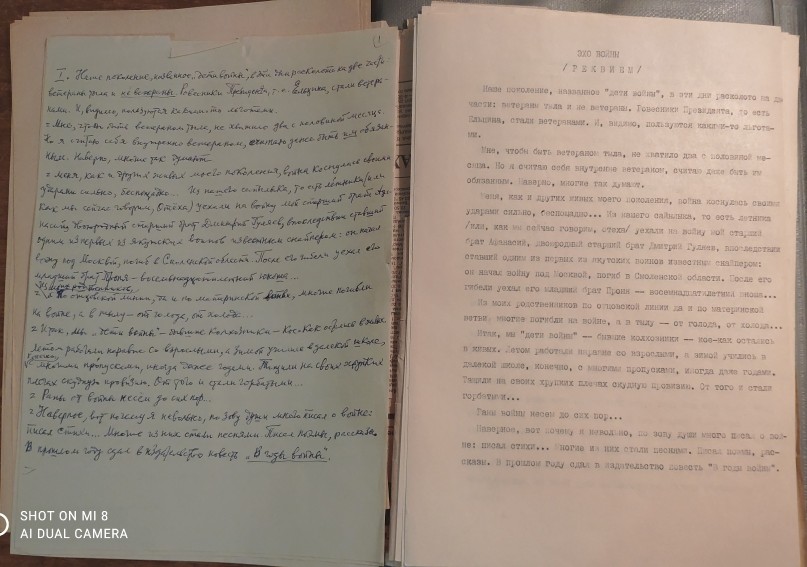 I. Наше поколение, названное "дети войны", в эти дни расколото на две части:
ветераны тыла и не ветераны. Ровесники Президента, т.е. Ельцина, стали ветера-
нами. И, видимо, пользуются какими-то льготами.
= Мне, чтобы быть ветераном тыла, не хватило два с половиной месяца.
Но я считаю себя внутренне ветераном, считаю даже быть им обязан-
ным. Наверно, многие так думают.
= Меня, как и других живых моего поколения, война коснулась своими
ударами сильно, беспощадно... Из нашего сайылыка, то есть летника /или
как мы сейчас говорим, отеха/ уехали на войну мой старший брат Афа-
насий, двоюродный старший брат Дмитрий Гуляев, впоследствии ставший
одним из первых из якутских воинов известным снайпером: он начал
войну под Москвой, погиб в Смоленской области. После его гибели уехал его
младший брат Проня – восемнадцатилетний юноша...
Из моих родственников
по отцовской линии, да и по материнской ветви, многие погибли
на войне, а в тылу – от голода, от холода...
= Итак, мы "дети войны" – бывшие колхозники – кое-как остались в живых.
Летом работали наравне со взрослыми, а зимой учились в далекой школе,
конечно,
с многими пропусками, иногда даже годами. Тащили на своих хрупких
плечах скудную провизию. От того и стали горбатыми...
= Раны от войны несём до сих пор...
= Наверное, вот почему я невольно, по зову души много писал о войне:
писал стихи... Многие из них стали песнями. Писал поэмы, рассказы.
В прошлом году сдал в издательство повесть "В годы войны".
ЭХО ВОЙНЫ
/РЕКВИЕМ/
Наше поколение, названное "дети войны", в эти дни расколото на две
части: ветераны тыла и не ветераны. Ровесники Президента, то есть
Ельцина, стали ветеранами. И, видимо, пользуются какими-то льгота-
ми.
Мне, чтобы быть ветераном тыла, не хватило два с половиной ме-
сяца. Но я считаю себя внутренне ветераном, считаю даже быть им
обязанным. Наверно, многие так думают.
Меня, как и других живых моего поколения, война коснулась своими
ударами сильно, беспощадно... Из нашего сайылыка, то есть летника
/или, как мы сейчас говорим, отеха/ уехали на войну мой старший
брат Афанасий, двоюродный старший брат Дмитрий Гуляев, впоследствии
ставший одним из первых из якутских воинов известным снайпером:
он начал войну под Москвой, погиб в Смоленской области. После его
гибели уехал его младший брат Проня – восемнадцатилетний юноша...
Из моих родственников по отцовской линии да и по материнской
ветви, многие погибли на войне, а в тылу – от голода, от холода...
Итак, мы "дети войны" – бывшие колхозники – кое-как остались
в живых. Летом работали наравне со взрослыми, а зимой учились в
далекой школе, конечно, с многими пропусками, иногда даже годами.
Тащили на своих хрупких плечах скудную провизию. От того и стали
горбатыми...
Раны войны несем до сих пор...
Наверное, вот почему я невольно, по зову души много писал о вой-
не: писал стихи... Многие из них стали песнями. Писал поэмы, рас-
сказы. В прошлом году сдал в издательство повесть "В годы войны".
SHOT ON MI 8
AI DUAL CAMERA